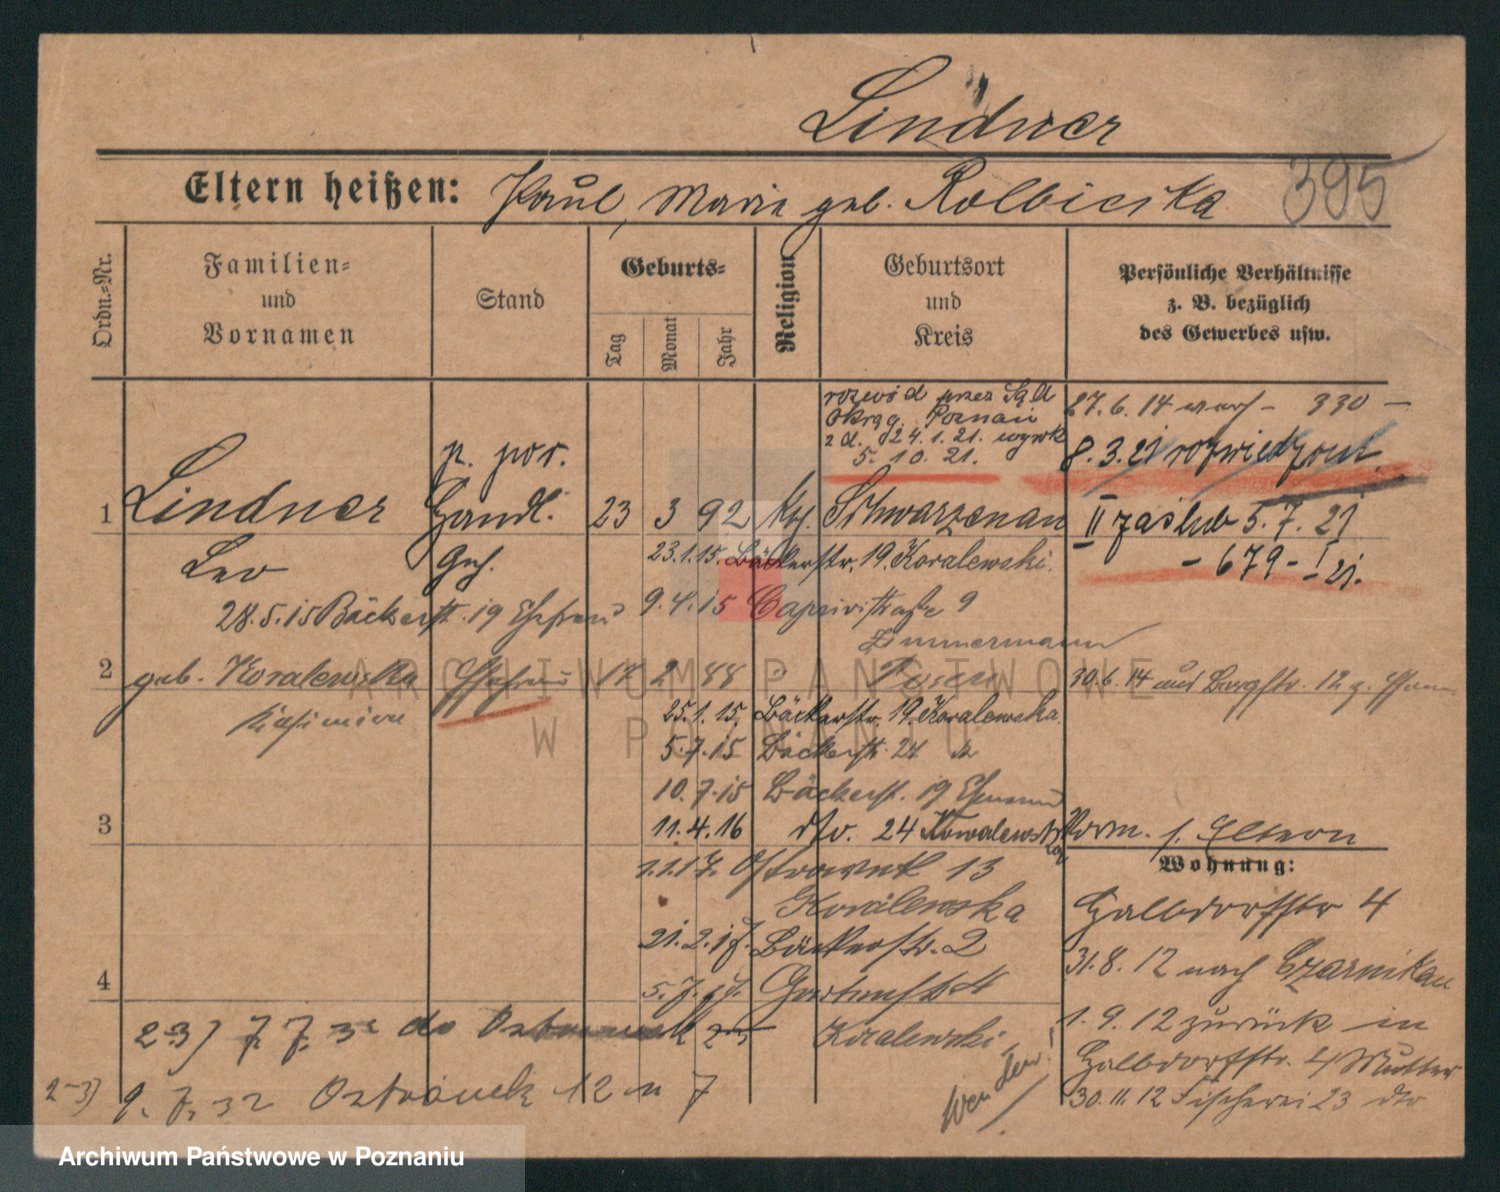 Lindner
Eltern heißen: Paul, Marie geb. Kolbicka
395
Ordn.=Nr.
Familien=
und
Vornamen
Stand
Geburts=
Tag
Monat
Jahr
Religion
Geburtsort
und
Kreis
Persönliche Verhältnisse
z. B. bezüglich
des Gewerbes usw.
rozwód przez Sąd
Okręg. Poznań
z d. 24.1.21. wyrok
5. 10. 21.
27.6.14 - 330 -
8.3.21 rozwiedziony
p. por.
1 Lindner Handl. 23 3 92 kf. Schwarzenau
II zaślub 5.7.21
- 679 - I 21.
Leo Geh.
23.1.15. Bäckerstr. 19. Koralewski.
28.5.15 Bäckerstr. 19 Ehefrau
9.4.15 Caprivistraße 9
Zimmermann
2 geb. Koralewska Ehefrau 17 2 88 Posen
30.6.14 aus Burgstr. 12
Kasimira
25.1.15. Bäckerstr. 19. Koralewska.
5.7.15 Bäckerstr. 24
10.7.15 Bäckerstr. 19 Ehemann
3
11.4.16 dto. 24 Kowalewska
Vorm. s. Eltern
Wohnung:
1.1.17. Ostrowek 13
Koralewska
Halbdorfstr 4
21.2.17. Bäckerstr. 2
31.8.12 nach Czarnikau
4
5.7.17. Gartenstr 4
Koralewski
1.9.12 zurück in
Halbdorfstr. 4 Mutter
30.11.12 Fischerei 23 dto
2-3) 7.7.32 do Ostrowek 25
2-3) 9.7.32 Ostrówek 12 m 7
Wenden!
ARCHIWUM PAŃSTWOWE
W POZNANIU
Archiwum Państwowe w Poznaniu